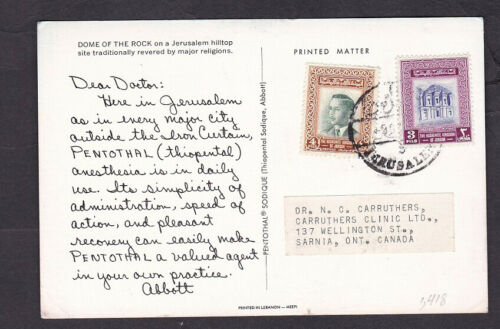 DOME OF THE ROCK on a Jerusalem hilltop
site traditionally revered by major religions.
Dear Doctor:
Here in Jerusalem
as in every major city
outside the Iron Curtain,
PENTOTHAL (thiopental)
anesthesia is in daily
use. Its simplicity of
administration, speed of
action, and pleasant
recovery can easily make
PENTOTHAL a valued agent
in your own practice.
Abbott
PENTOTHAL® SODIQUE (Thiopental Sodique, Abbott)
PRINTED MATTER
4
THE HASHEMITE KINGDOM
OF JORDAN
3
FILS
٣
THE HASHEMITE KINGDOM
OF JORDAN
JERUSALEM
DR. N. C. CARRUTHERS,
CARRUTHERS CLINIC LTD.,
137 WELLINGTON ST.,
SARNIA, ONT. CANADA
PRINTED IN LEBANON - MEEPI